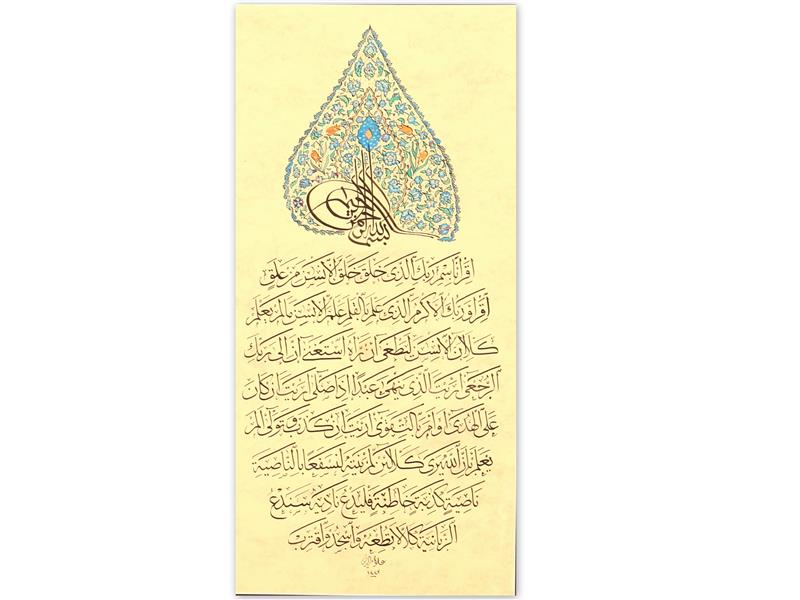 بسم الله الرحمن الرحيم
اقرأ باسم ربك الذى خلق خلق الانسن من علق
اقرأ وربك الاكرم الذى علم بالقلم علم الانسن مالم يعلم
كلا ان الانسن ليطغى ان رءاه استغنى ان الى ربك
الرجعى ارءيت الذى ينهى عبدا اذا صلى ارءيت ان كان
على الهدى او امر بالتقوى ارءيت ان كذب وتولى الم
يعلم بان الله يرى كلا لئن لم ينته لنسفعا بالناصية
ناصية كذبة خاطئة فليدع ناديه سندع
الزبانية كلا لا تطعه واسجد واقترب